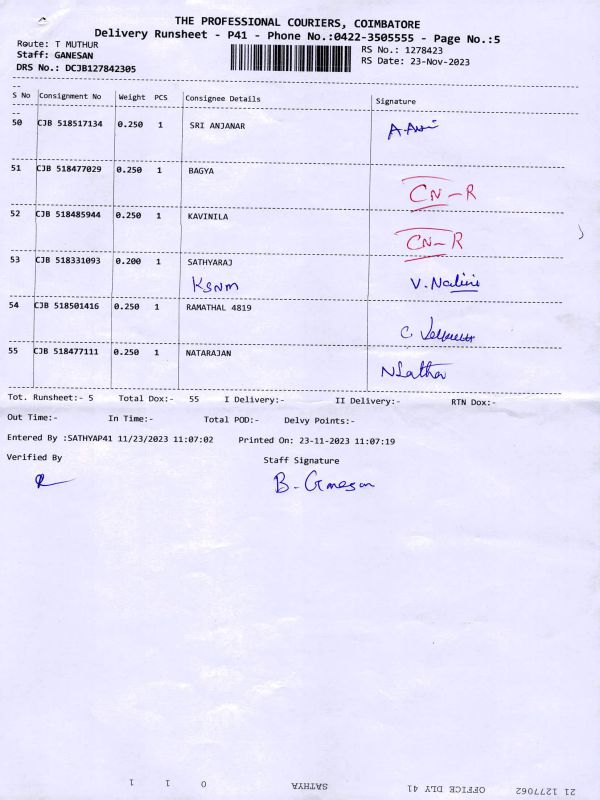 THE PROFESSIONAL COURIERS, COIMBATORE
Delivery Runsheet - P41 - Phone No.:0422-3505555 - Page No.:5
Route: T MUTHUR RS No.: 1278423
Staff: GANESAN RS Date: 23-Nov-2023
DRS No.: DCJB127842305
S No Consignment No Weight PCS Consignee Details Signature
50 CJB 518517134 0.250 1 SRI ANJANAR
51 CJB 518477029 0.250 1 BAGYA
CN-R
52 CJB 518485944 0.250 1 KAVINILA
CN-R
53 CJB 518331093 0.200 1 SATHYARAJ
KSNM V.Nalini
54 CJB 518501416 0.250 1 RAMATHAL 4819
55 CJB 518477111 0.250 1 NATARAJAN
N Latha
Tot. Runsheet:- 5 Total Dox:- 55 I Delivery:- II Delivery:- RTN Dox:-
Out Time:- In Time:- Total POD:- Delvy Points:-
Entered By :SATHYAP41 11/23/2023 11:07:02 Printed On: 23-11-2023 11:07:19
Verified By Staff Signature
B. Ganesan
21 1277062 OFFICE DLY 41 SATHYA 0 1 1